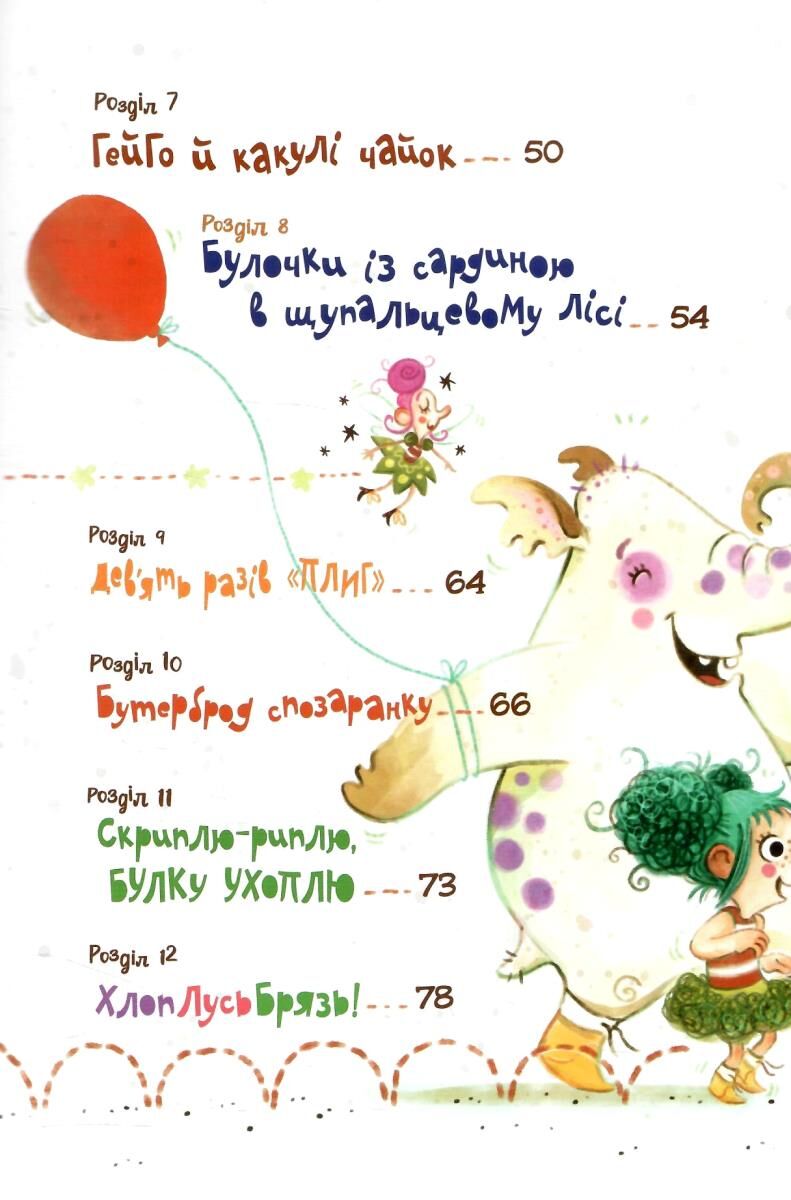 Розділ 7
Гейго й какулі чайок 50
Розділ 8
Булочки із сардиною
в щупальцевому лісі 54
Розділ 9
Дев'ять разів «ПЛИГ» 64
Розділ 10
Бутерброд спозаранку 66
Розділ 11
Скриплю-риплю,
БУЛКУ УХОПЛЮ 73
Розділ 12
ХлопЛусьБрязь! 78